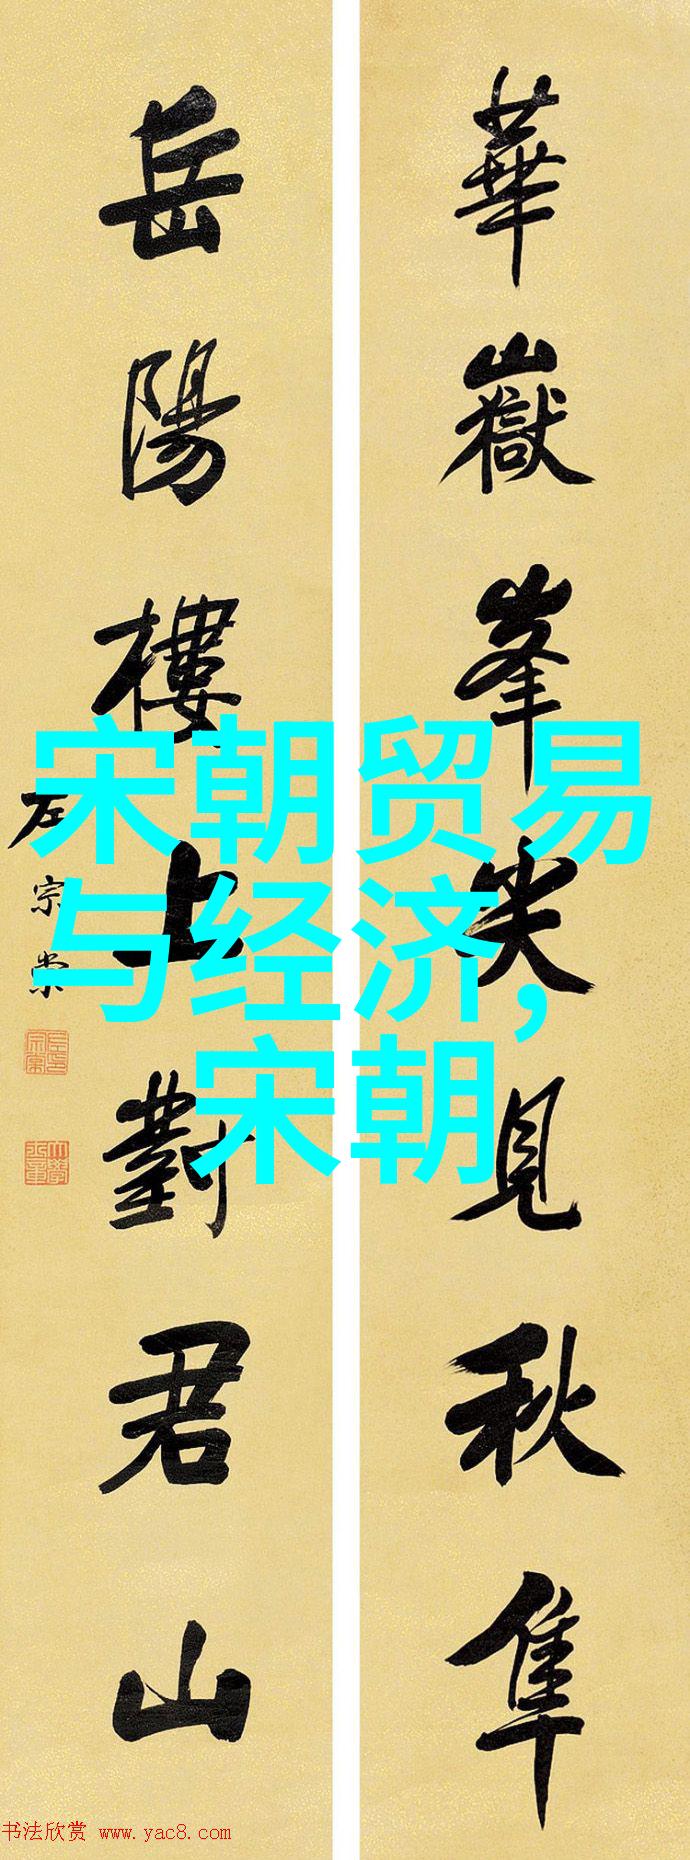 華嶽峯尖見秋隼
岳陽樓上對君山
左宗棠
宋朝贸易
与经济,
宋朝
书法欣赏 www.yac8.com